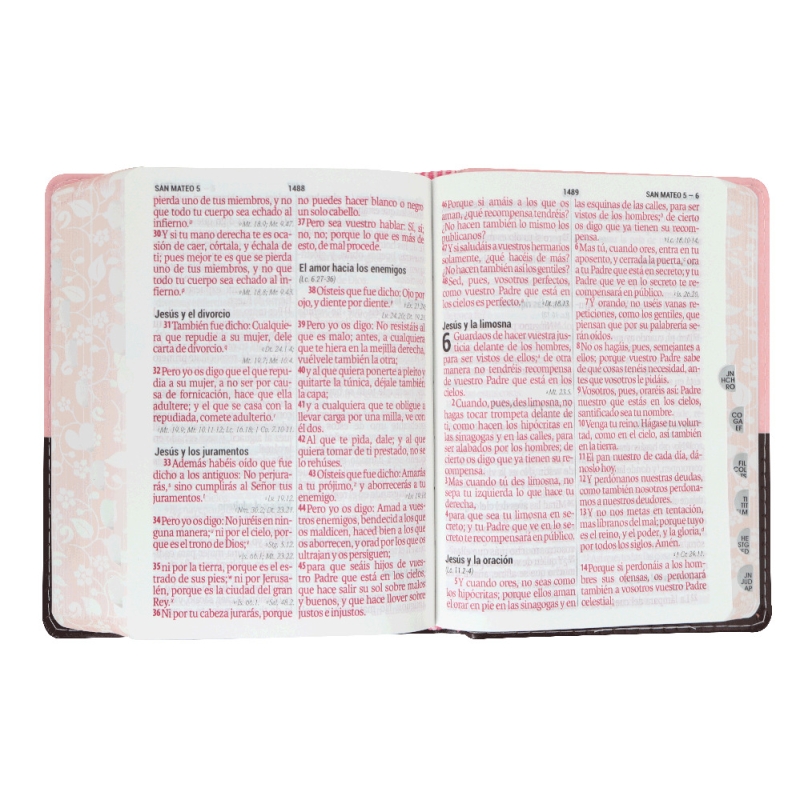 SAN MATEO 5
1488
pierda uno de tus miembros, y no
que todo tu cuerpo sea echado al
infierno.
30 Y si tu mano derecha te es oca-
sión de caer, córtala, y échala de
ti; pues mejor te es que se pierda
uno de tus miembros, y no que
todo tu cuerpo sea echado al in-
fierno.
Jesús y el divorcio
31 También fue dicho: Cualquie-
ra que repudie a su mujer, dele
carta de divorcio.
32 Pero yo os digo que el que repu-
dia a su mujer, a no ser por cau-
sa de fornicación, hace que ella
adultere; y el que se casa con la
repudiada, comete adulterio.
Jesús y los juramentos
33 Además habéis oído que fue
dicho a los antiguos: No perjura-
rás, sino cumplirás al Señor tus
juramentos.
34 Pero yo os digo: No juréis en nin-
guna manera; ni por el cielo, por-
que es el trono de Dios;
35 ni por la tierra, porque es el es-
trado de sus pies; ni por Jerusa-
lén, porque es la ciudad del gran
Rey.
36 Ni por tu cabeza jurarás, porque
no puedes hacer blanco o negro
un solo cabello.
37 Pero sea vuestro hablar: Sí, sí;
no, no; porque lo que es más de
esto, de mal procede.
El amor hacia los enemigos
(Lc. 6.27-36)
38 Oísteis que fue dicho: Ojo por
ojo, y diente por diente.
39 Pero yo os digo: No resistáis al
que es malo; antes, a cualquiera
que te hiera en la mejilla derecha,
vuélvele también la otra;
40 y al que quiera ponerte a pleito y
quitarte la túnica, déjale también
la capa;
41 y a cualquiera que te obligue a
llevar carga por una milla, ve con
él dos.
42 Al que te pida, dale; y al que
quiera tomar de ti prestado, no se
lo rehúses.
43 Oísteis que fue dicho: Amarás
a tu prójimo, y aborrecerás a tu
enemigo.
44 Pero yo os digo: Amad a vues-
tros enemigos, bendecid a los que
os maldicen, haced bien a los que
os aborrecen, y orad por los que os
ultrajan y os persiguen;
45 para que seáis hijos de vues-
tro Padre que está en los cielos,
que hace salir su sol sobre malos
y buenos, y que hace llover sobre
justos e injustos.
1489
SAN MATEO 5 – 6
46 Porque si amáis a los que os
aman, ¿qué recompensa tendréis?
¿No hacen también lo mismo los
publicanos?
47 Y si saludáis a vuestros hermanos
solamente, ¿qué hacéis de más?
¿No hacen también así los gentiles?
48 Sed, pues, vosotros perfectos,
como vuestro Padre que está en
los cielos es perfecto.
Jesús y la limosna
6 Guardaos de hacer vuestra jus-
ticia delante de los hombres,
para ser vistos de ellos; de otra
manera no tendréis recompensa
de vuestro Padre que está en los
cielos.
2 Cuando, pues, des limosna, no
hagas tocar trompeta delante de
ti, como hacen los hipócritas en
las sinagogas y en las calles, para
ser alabados por los hombres; de
cierto os digo que ya tienen su re-
compensa.
3 Mas cuando tú des limosna, no
sepa tu izquierda lo que hace tu
derecha,
4 para que sea tu limosna en se-
creto; y tu Padre que ve en lo se-
creto te recompensará en público.
Jesús y la oración
(Lc. 11.2-4)
5 Y cuando ores, no seas como
los hipócritas; porque ellos aman
el orar en pie en las sinagogas y en
las esquinas de las calles, para ser
vistos de los hombres; de cierto
os digo que ya tienen su recom-
pensa.
6 Mas tú, cuando ores, entra en tu
aposento, y cerrada la puerta, ora
a tu Padre que está en secreto; y tu
Padre que ve en lo secreto te re-
compensará en público.
7 Y orando, no uséis vanas re-
peticiones, como los gentiles, que
piensan que por su palabrería se-
rán oídos.
8 No os hagáis, pues, semejantes a
ellos; porque vuestro Padre sabe
de qué cosas tenéis necesidad, an-
tes que vosotros le pidáis.
9 Vosotros, pues, oraréis así: Padre
nuestro que estás en los cielos,
santificado sea tu nombre.
10 Venga tu reino. Hágase tu volun-
tad, como en el cielo, así también
en la tierra.
11 El pan nuestro de cada día, dá-
noslo hoy.
12 Y perdónanos nuestras deudas,
como también nosotros perdona-
mos a nuestros deudores.
13 Y no nos metas en tentación,
mas líbranos del mal; porque tuyo
es el reino, y el poder, y la gloria,
por todos los siglos. Amén.
14 Porque si perdonáis a los hom-
bres sus ofensas, os perdonará
también a vosotros vuestro Padre
celestial;